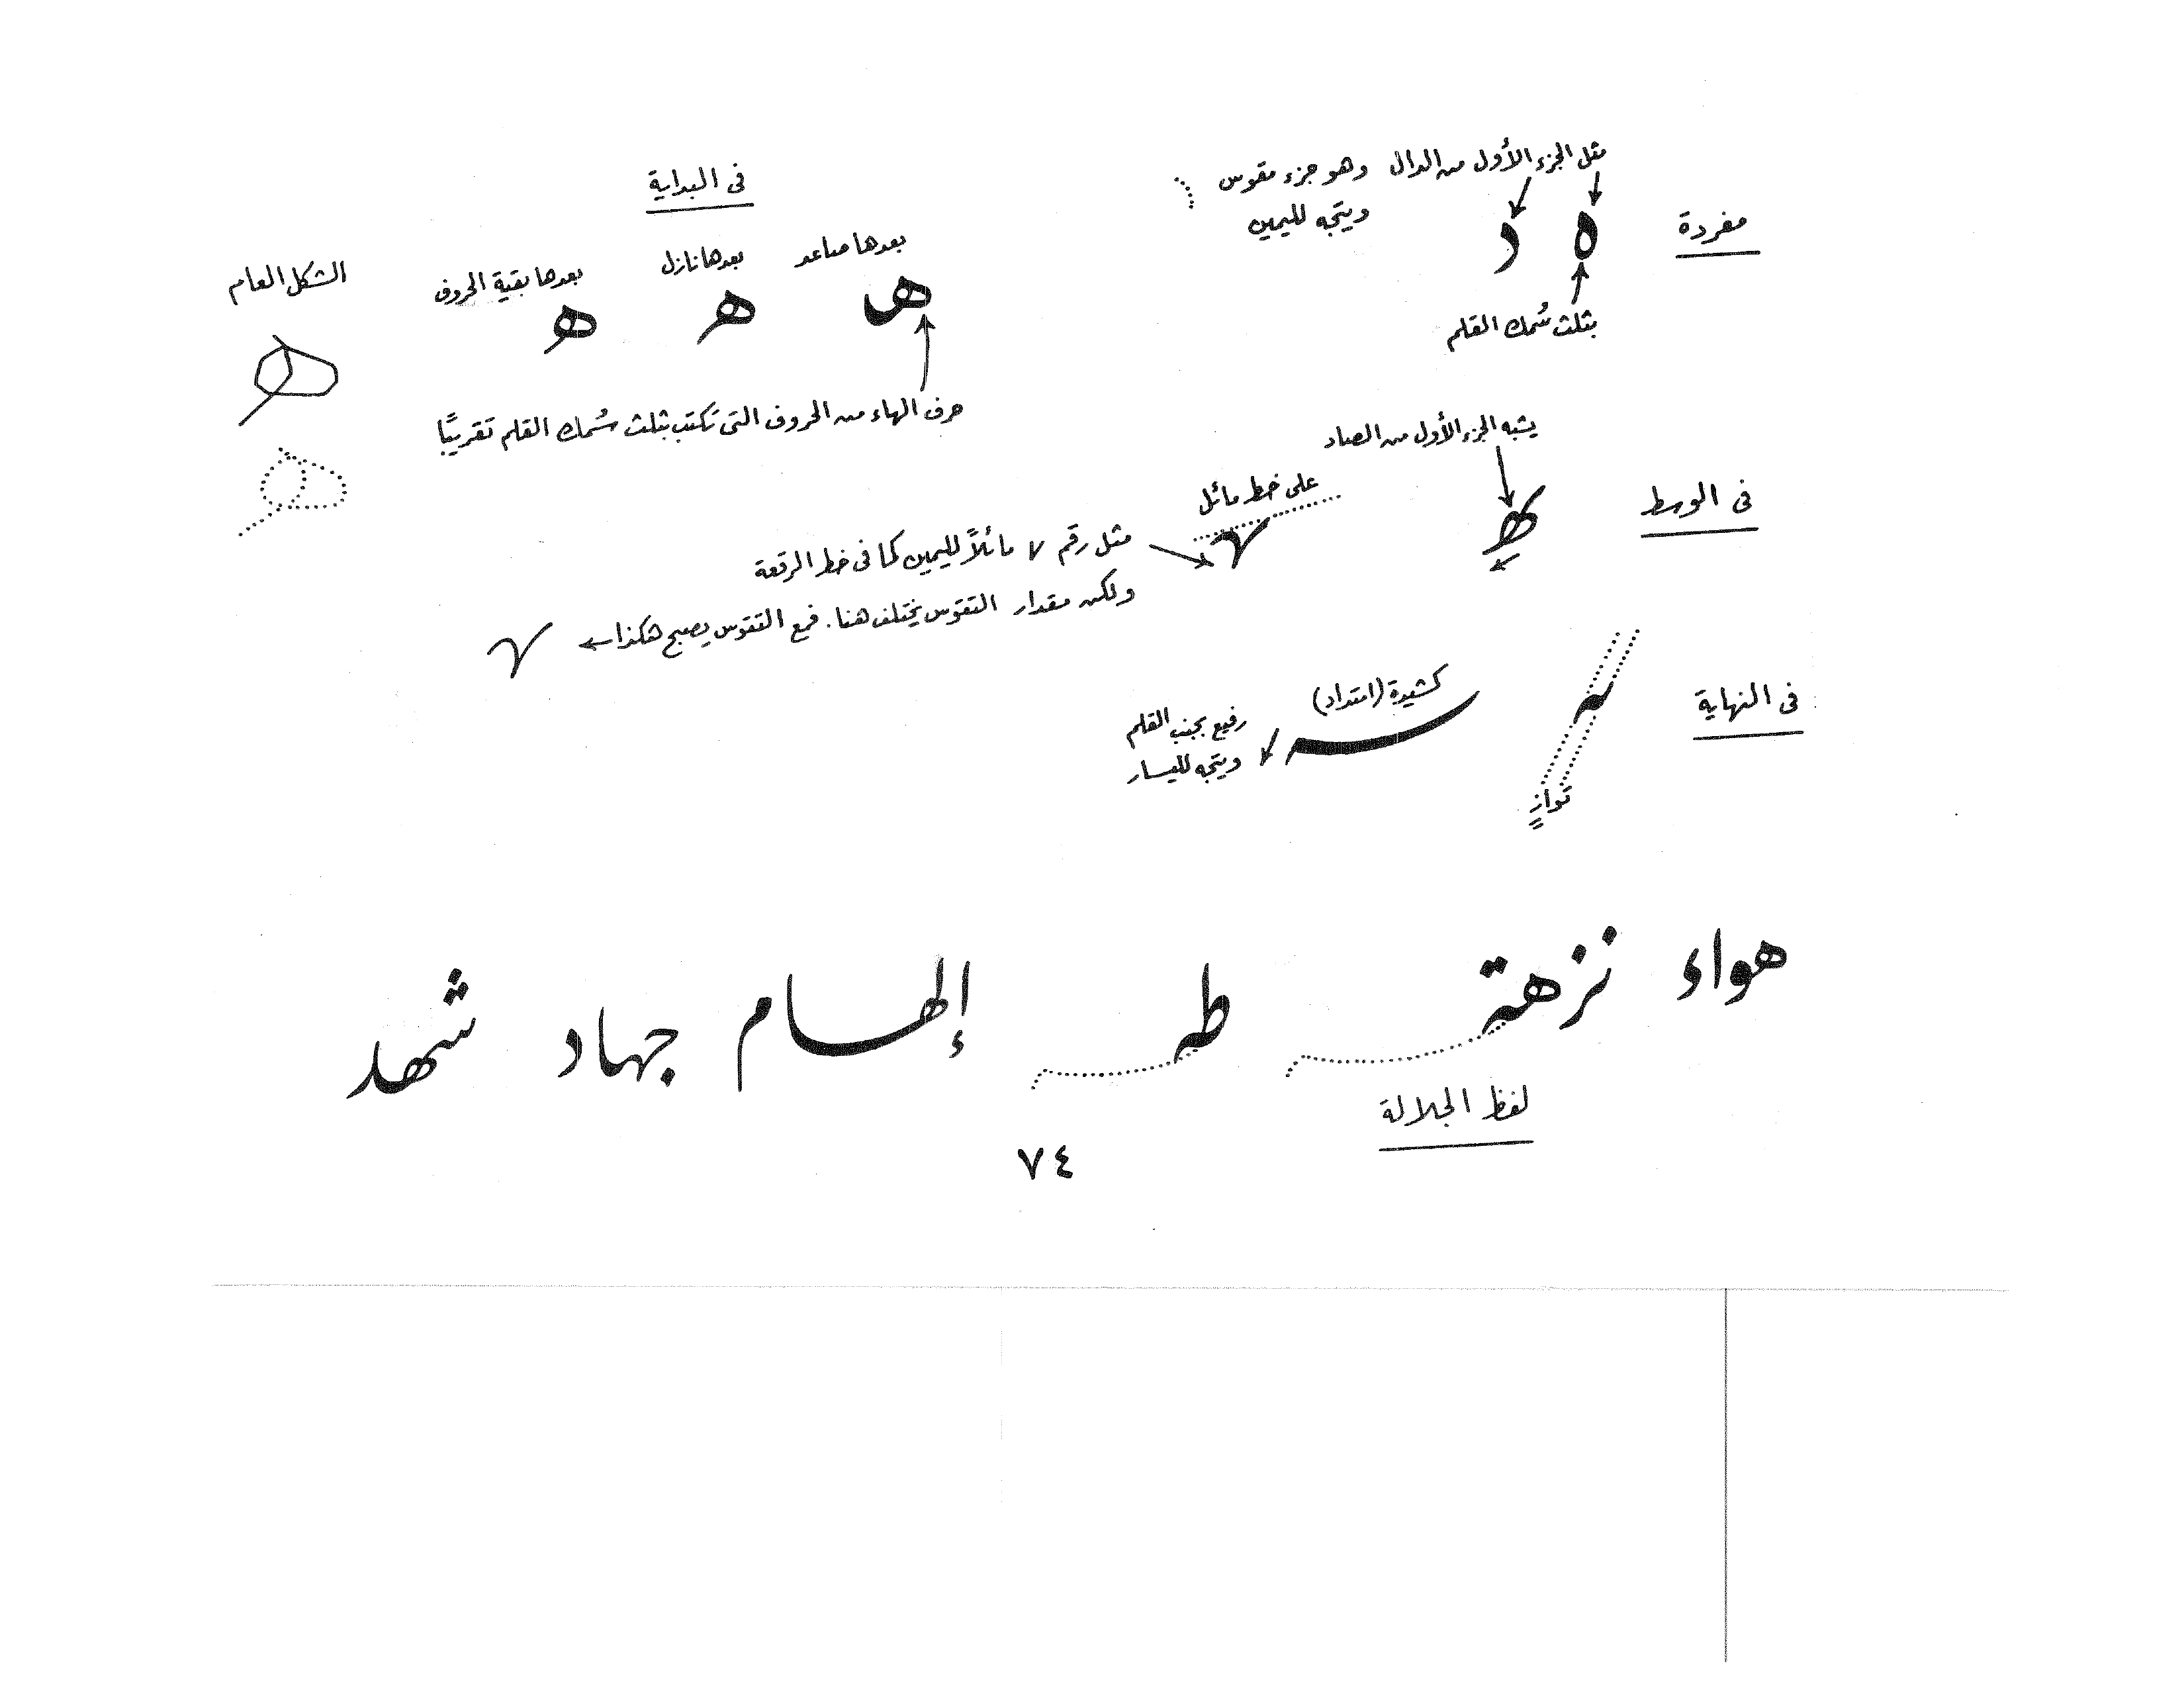 مثل الجزء الأول من الدال وهو جزء مقوس
ويتجه لليمين
مفردة
ه د
بثلث سُمك القلم
فى البداية
بعدها صاعد
بعدها نازل
بعدها بقية الحروف
الشكل العام
هـ هـ هـ
حرف الهاء من الحروف التى تكتب بثلث سُمك القلم تقريبًا
فى الوسط
يشبه الجزء الأول من الصاد
ـهـ
على خط مائل
مثل رقم ٧ مائلاً لليمين كما فى خط الرقعة
ولكن مقدار التقوس يختلف هنا. فمع التقوس يصبح هكذا
فى النهاية
ـه
توازٍ
كشيدة (امتداد)
رفيع بجنب القلم
ويتجه لليسار
هواء نزهة طه إلهام جهاد شهد
لفظ الجلالة
٧٤